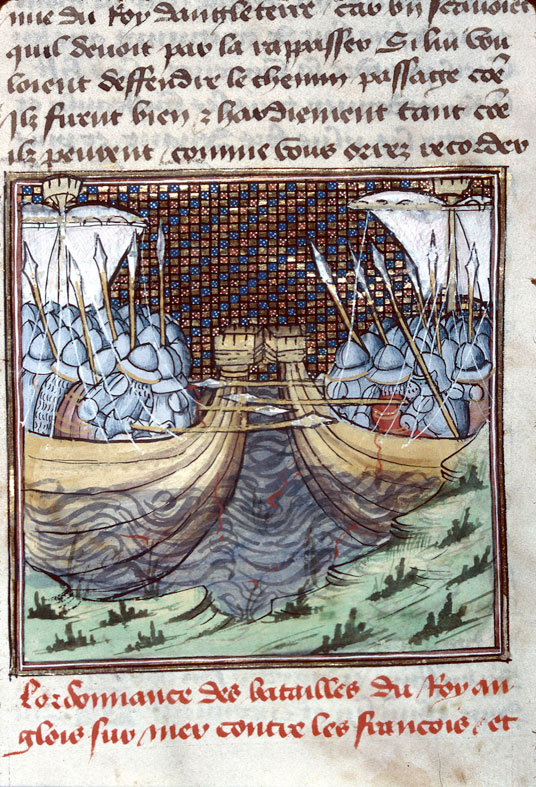 mie du Roy dangleterre / car bn scauoiet
quil deuoit par la rappasser Si lui vou
loient deffendre le chemin passage cōe
Ilz furent bien & hardiement tant cōe
ilz peurent / comme vous orrez recorder
Lordonnance des batailles du Roy an
glois sur mer contre les francois / et